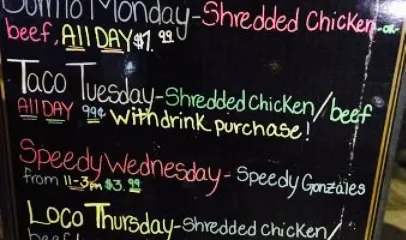 Monday-Shredded Chicken -or-
beef, All DAY $1.99
Taco Tuesday-Shredded chicken/beef
All DAY 99¢ with drink purchase!
Speedy Wednesday - Speedy Gonzales
from 11-3pm $3.99
Loco Thursday-Shredded chicken/
beef